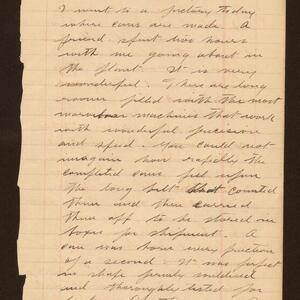 I went to a factory today
where cans are made. A
friend spent two hours
with me going about in
the plant. It is very
wonderful. There are long
rooms filled with the most
marvelous machines that work
with wonderful precision
and speed. You could not
imagine how rapidly the
completed cans fell upon
the long belt that counted
them and then carried
them off to be stored in
boxes for shipment. A
can was born every fraction
of a second. It was perfect
in shape firmly soldered
and thoroughly tested for